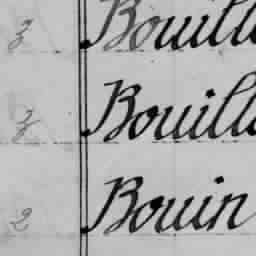 3 Bouill
3 Bouill
2 Bouin